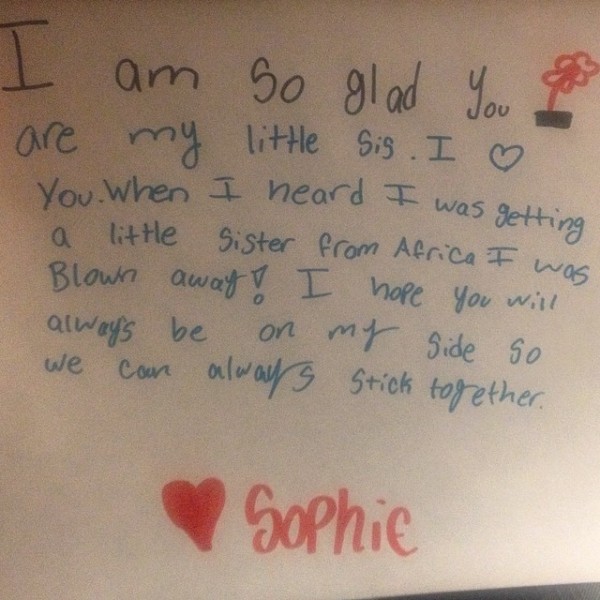 I am so glad you
are my little sis. I ♡
You. When I heard I was getting
a little sister from Africa I was
Blown away! I hope you will
always be on my side so
we can always stick together.
♥ Sophie